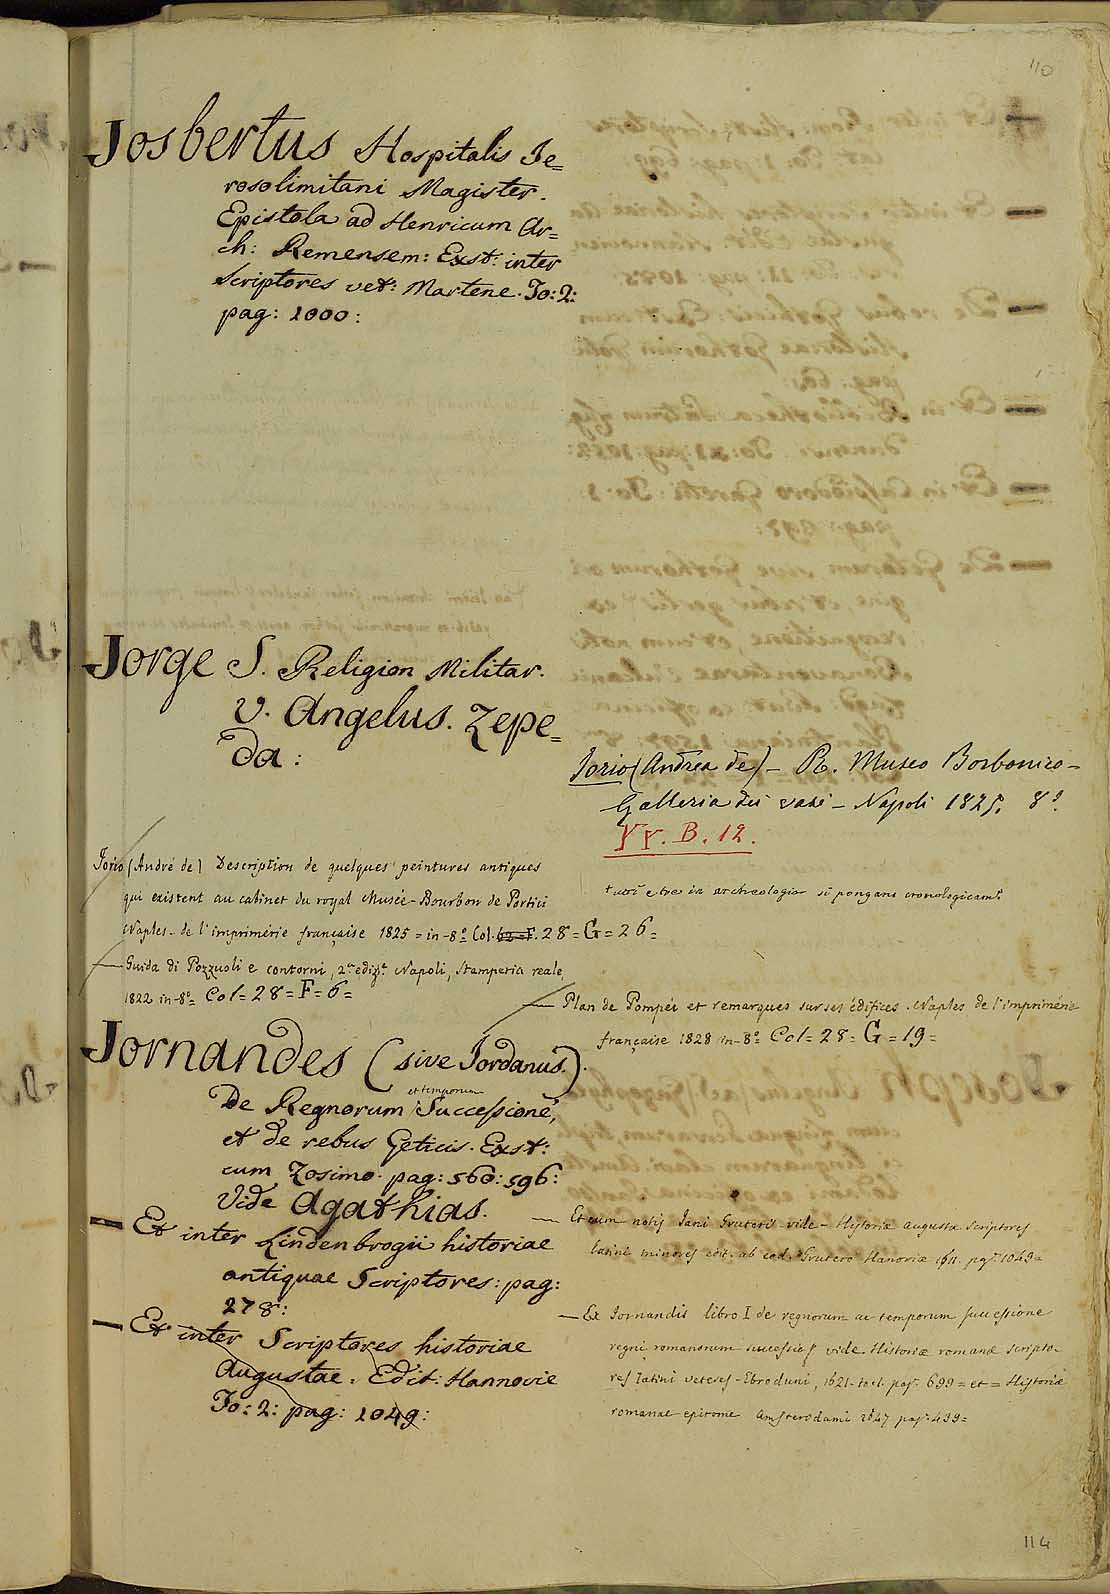 110
Josbertus Hospitalis Je=
rosolimitani Magister.
Epistola ad Henricum Ar=
ch: Remensem: Exst: inter
Scriptores vet: Martene. To: 2:
pag: 1000:
Jorge S. Religion Militar.
V. Angelus. Zepe=
da:
Jorio (Andrea de) – R. Museo Borbonico –
Galleria dei vasi – Napoli 1825. 8º.
YY. B. 12.
Jorio (André de) Description de quelques peintures antiques
qui existent au cabinet du royal Musée-Bourbon de Portici
Naples. de l'imprimérie française 1825 = in-8º Col. 28 = G = 26 =
— Guida di Pozzuoli e contorni, 2.ª ediz.e Napoli, Stamperia reale,
1822 in-8º = Col = 28 = F = 6 =
tutti e tre in archeologia si pongano cronologicamᵗᵉ
— Plan de Pompéi et remarques sur ses édifices. Naples de l'imprimérie
française 1828 in-8º = Col = 28 = G = 19 =
Jornandes (sive Jordanus.).
et temporum
De Regnorum Successione,
et de rebus Geticis. Exst:
cum Zosimo. pag: 560: 596:
Vide Agathias.
— Et inter Lindenbrogii historiae
antiquae Scriptores: pag:
278:
— Et inter Scriptores historiae
Augustae. Edit: Hannovie
To: 2: pag: 1049:
— Et cum notis Jani Gruteri vide – Historiæ augustæ scriptores
latini minores edit. ab eod. Grutero Hanoviæ 1611. pg. 1049 =
— Ex Jornandis libro I de regnorum ac temporum successione
regni romanorum successio vide Historiæ romanæ scripto-
res latini veteres – Ebroduni, 1621. pag. 699 = et = Historiæ
romanae epitome Amsterodami 1647 pag. 499 =
114